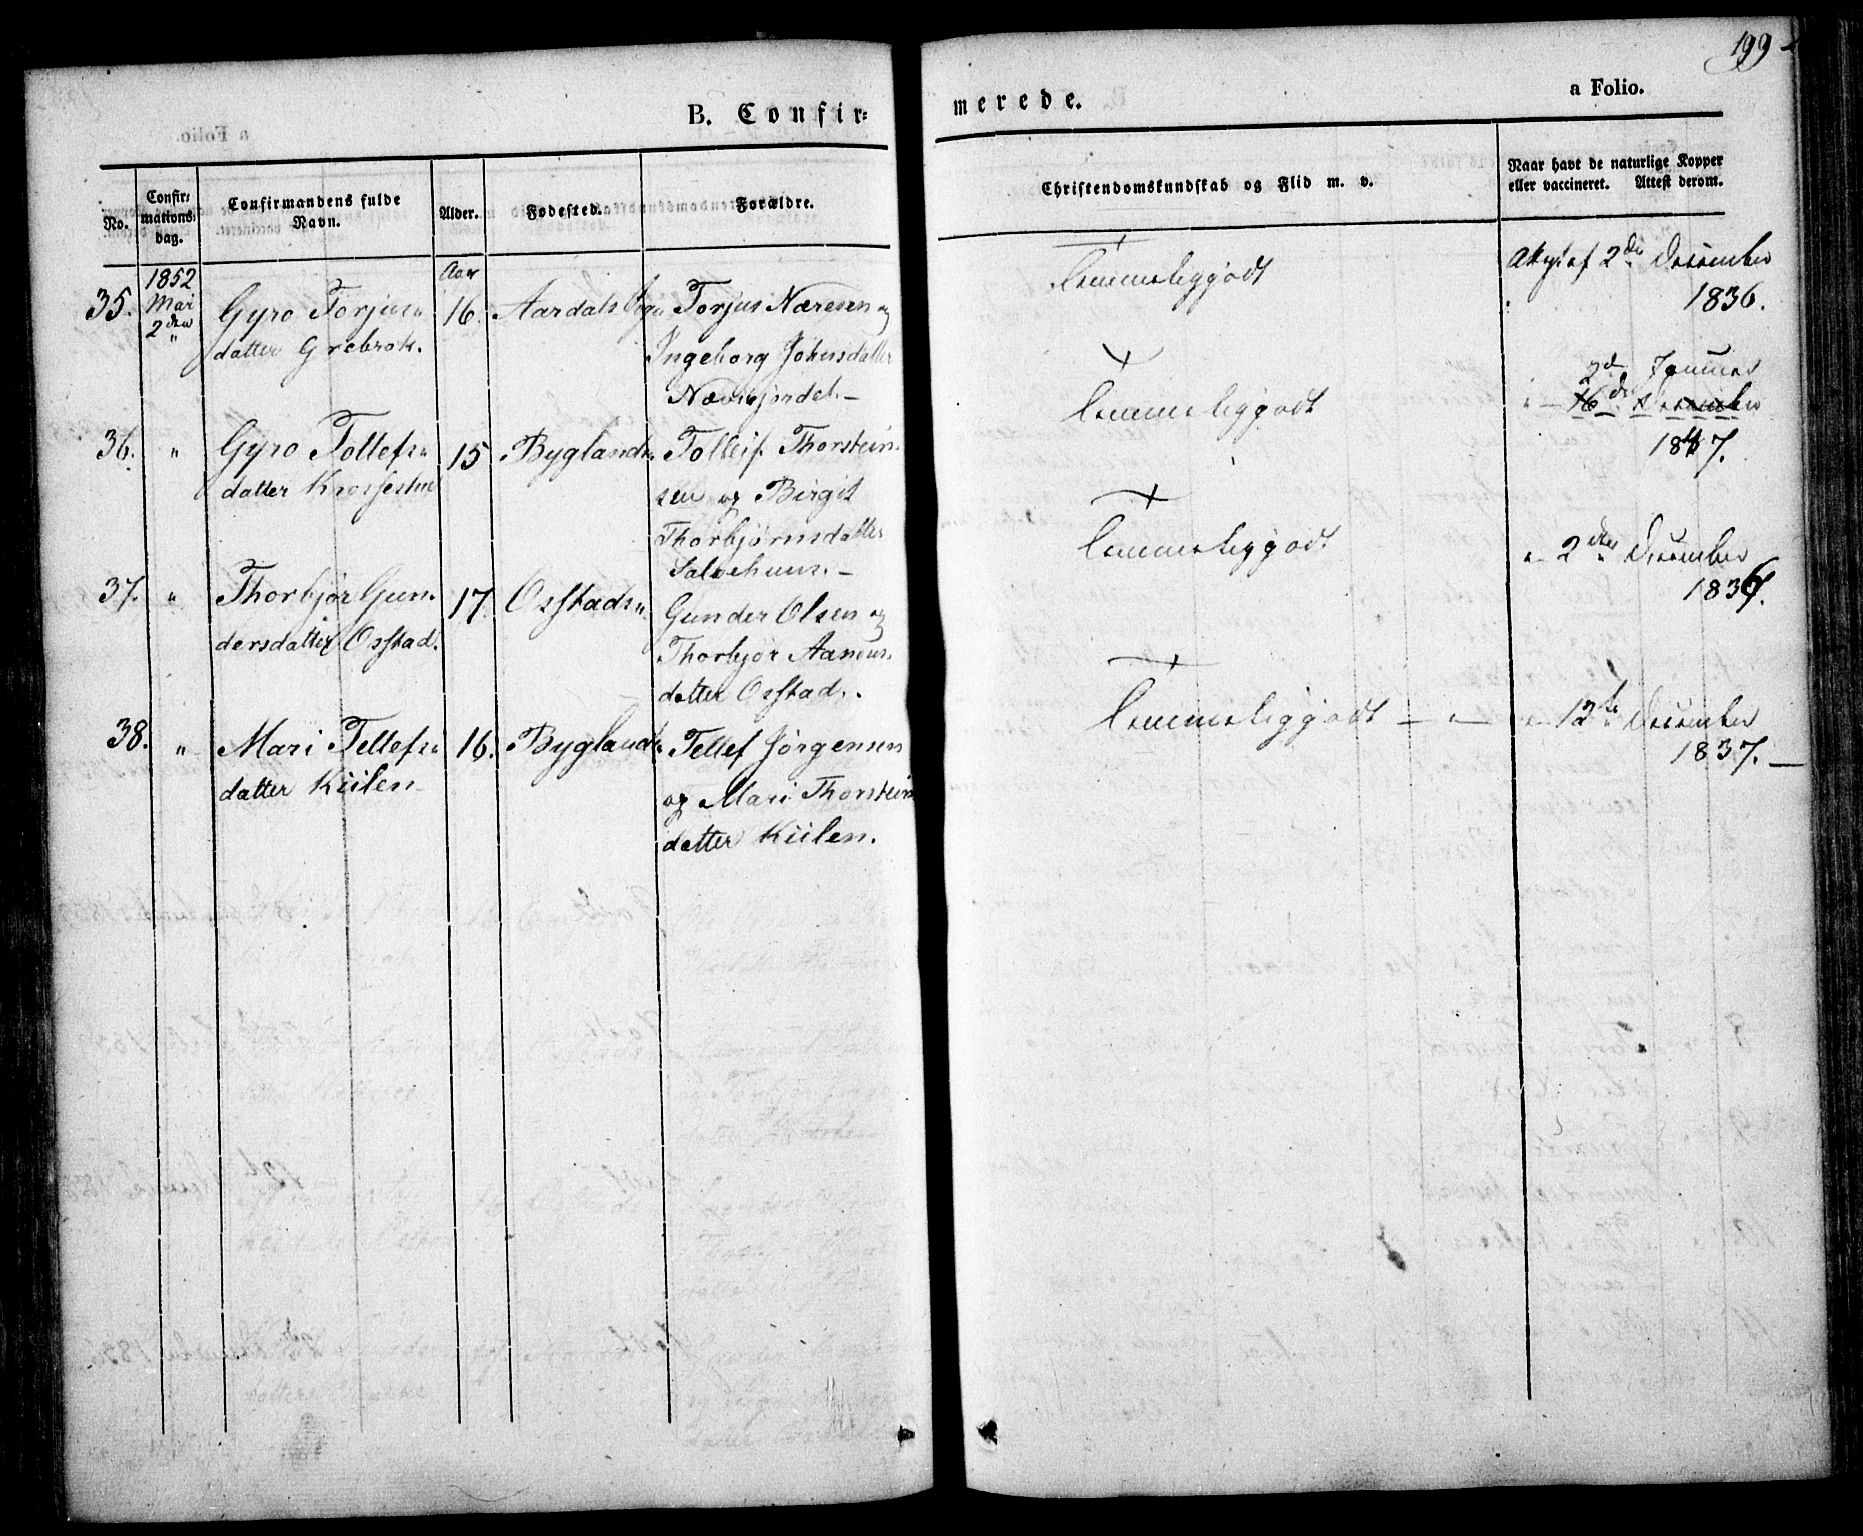 199
B. Confir=
merede.
a Folio.
No.
Confir=
mations=
dag.
Confirmandens fulde
Navn.
Alder.
Fødested.
Forældre.
Christendomskundskab og Flid m. v.
Naar havt de naturlige Kopper
eller vaccineret. Attest derom.
35.
1852
Mai
2den
"
Gyro Torjus"
datter Grebrok.
Aar
16.
Aardals Sogn
Torjus Næresen og
Ingeborg Johnsdatter
temmeliggodt
Attest af 2den December
1836.
36.
"
Gyro Tollefs"
datter
15
Byglands"
Tolleif Thorstein
sen og Birgit
Thorbjørnsdatter
temmeliggodt
2den Januar
16de December
1847.
37.
"
Thorbjør Gun
dersdatter Osstad.
17.
Osstads"
Gunder Olsen og
Thorbjør Aanons
datter Osstad.
temmeliggodt
" 2den December
1836.
38.
"
Mari Tellefs"
datter Kiilen
16.
Byglands"
Tellef Jørgensen
og Mari Thorstein
datter Kiilen.
temmeliggodt — " —
" 12te December
1837. —